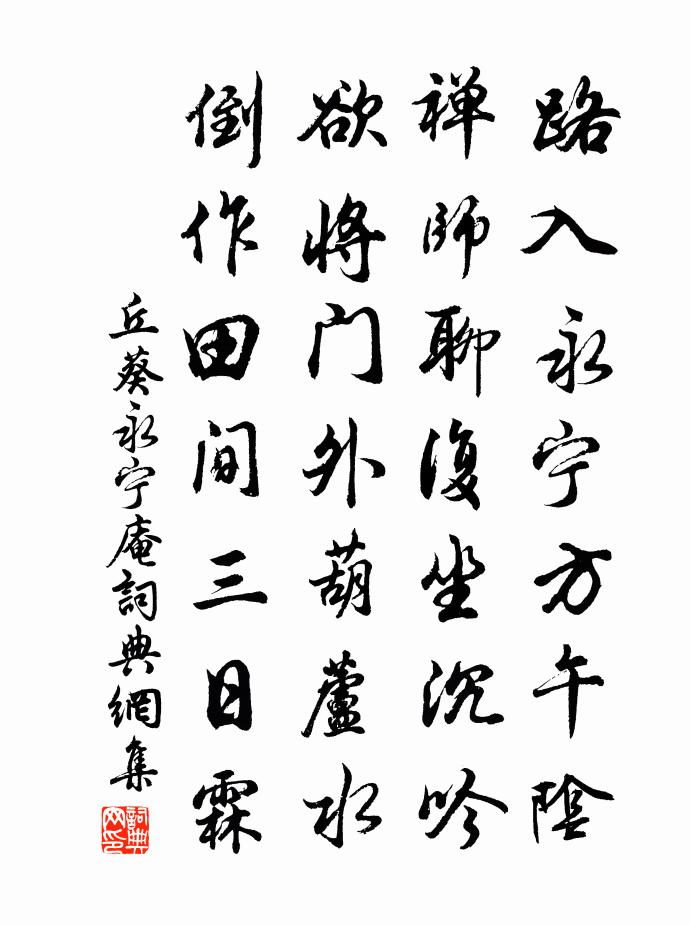 路入永宁方午陰
禅師聊復坐沉吟
欲将门外葫蘆水
倒作田间三日霖
丘葵永宁庵詞典網集
詞典网印